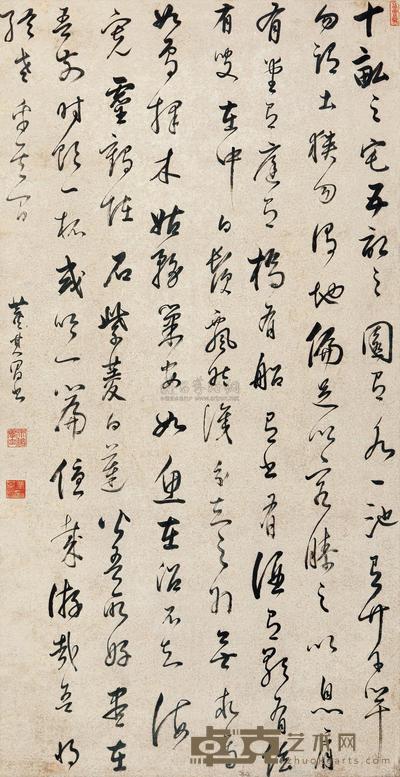 十畝之宅五畝之園有水一池有竹千竿
勿謂土狹勿謂地偏足以容膝足以息肩
有堂有庭有橋有船有書有酒有歌有絃
有叟在中白鬚飄然識分知足外無求焉
如鳥擇木姑務巢安如魚在沼不知海
寬靈鶴怪石紫菱白蓮皆吾所好盡在
吾前時飲一杯或吟一篇優哉游哉吾將
終老乎其間
董其昌書
卓克艺术网